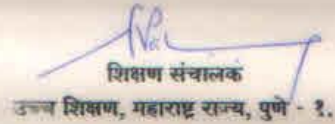 शिक्षण संचालक
उच्च शिक्षण, महाराष्ट्र राज्य, पुणे - १.